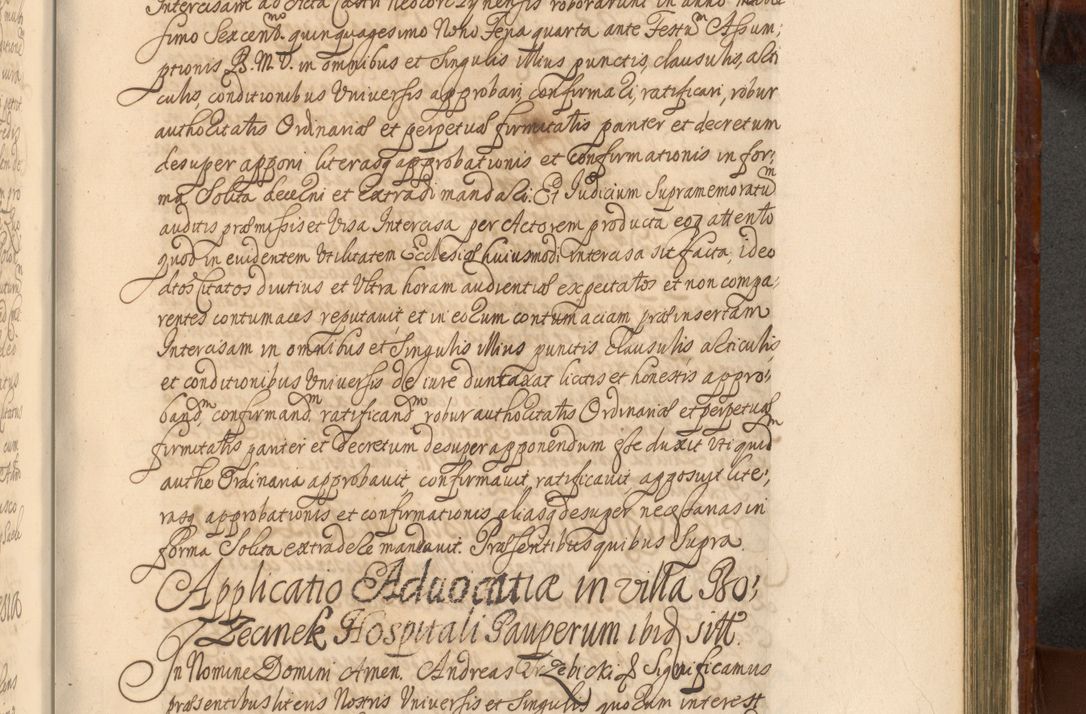 Intercisam ad Acta Castri Neocorczynensis roborarunt in anno Mille
simo Sexcent.mo quinquagesimo Nono Feria quarta ante Festu.m Assum;
ptionis B. M. V. in omnibus et Singulis illius punctis, clausulis, arti
culis, conditionibus Universis approbari, confirmari, ratificari, robur
authoritatis Ordinariæ et perpetuæ firmitatis pariter et decretum
desuper apponi literasq approbationis et confirmationis in for;
ma Solita decerni et extradi mandari. Et Judicium Supramemoratu.m
auditis præmissis et Visa Intercisa per Actorem producta eoq attento
quod in evidentem Utilitatem Ecclesiæ huiusmodi intercisa sit facta, ideo
dtos Citatos diutius et Ultra horam audientiæ expectatos et non compa;
rentes contumaces reputavit et in eorum contumaciam præinsertam
Intercisam in omnibus et Singulis illius punctis Clausulis articulis
et conditionibus Universis de iure duntaxat licitis et honestis appro;
band.m, confirmand.m ratificand.m robur authoritatis Ordinariæ et perpetuæ
firmitatis pariter et Decretum desuper apponendum esse duxit Uti quid.m
autho Ordinaria approbavit confirmavit, ratificavit apposuit lite;
rasq approbationis et confirmationis aliasq desuper necessarias in
forma Solita extradere mandavit. Præsentibus quibus Supra.
Applicatio Advocatiæ in villa Bo;
Zecinek Hospitali Pauperum ibid sitt.
In Nomine Domini Amen. Andreas Trzebicki & Significamus
præsentibus literis Nostris Universis et Singulis quorum interest